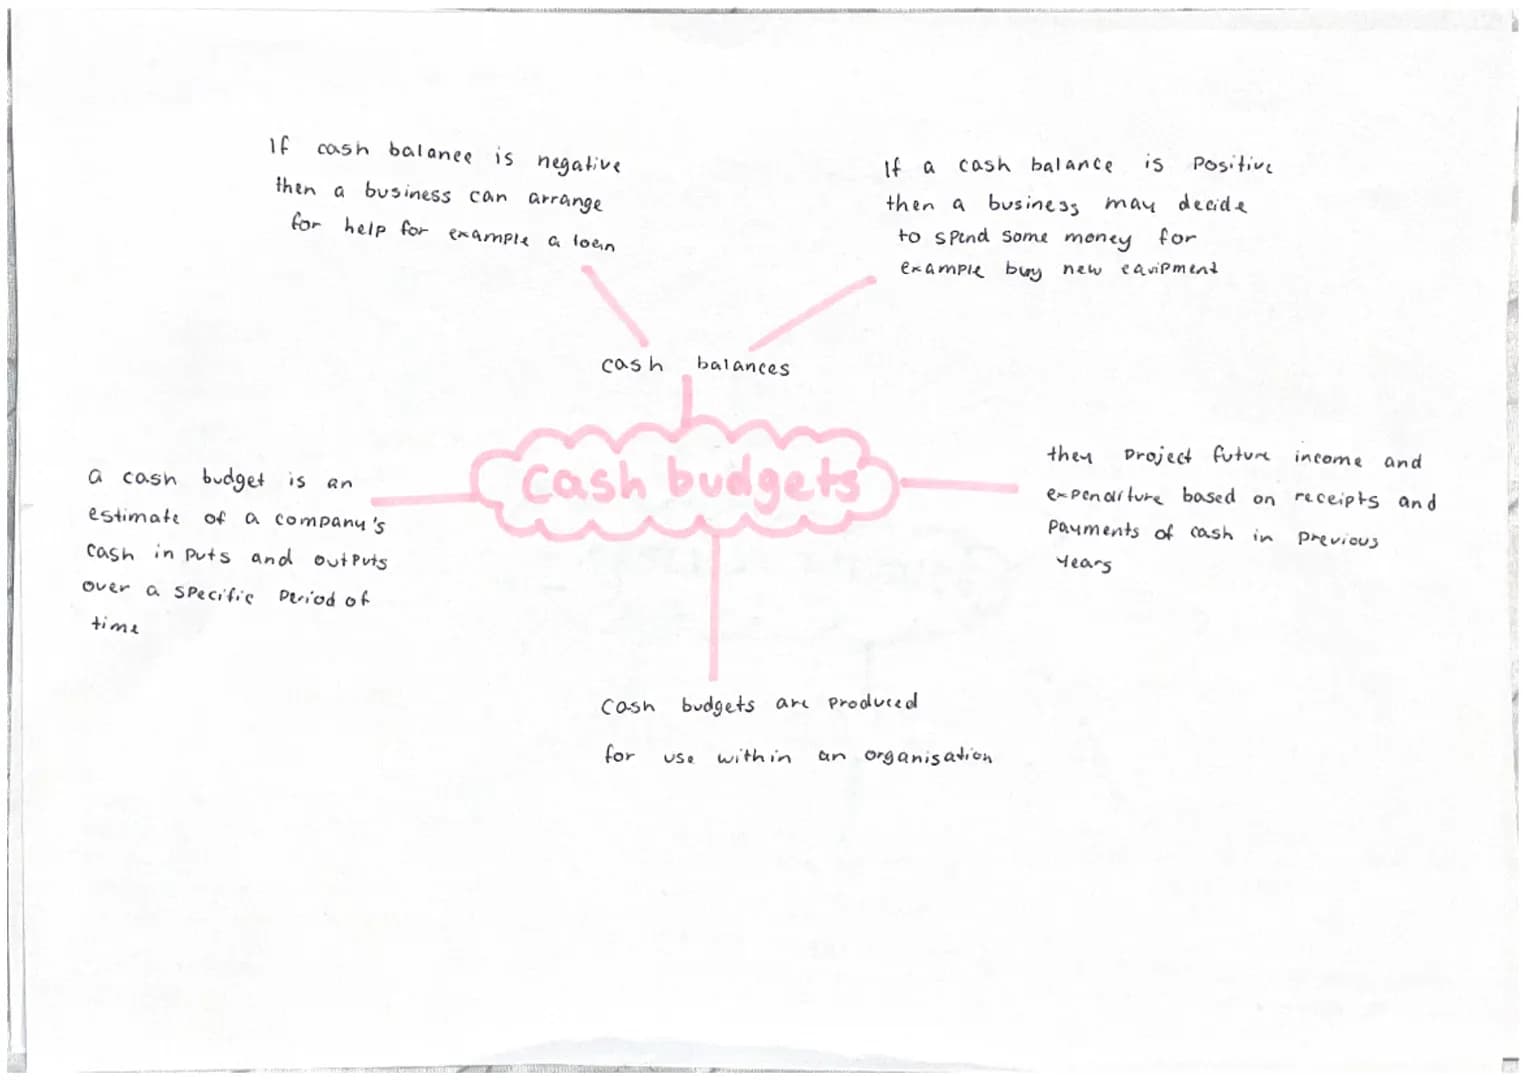 If cash balance is negative
then a business can arrange
for help for example a loan
If a cash balance is positive
then a business may decide
to spend some money for
example buy new equipment
cash balances
cash budgets
a cash budget is an
estimate of a company's
cash in puts and outputs
over a specific period of
time
they project future income and
expenditure based on receipts and
payments of cash in previous
years
cash budgets are produced
for use within an organisation